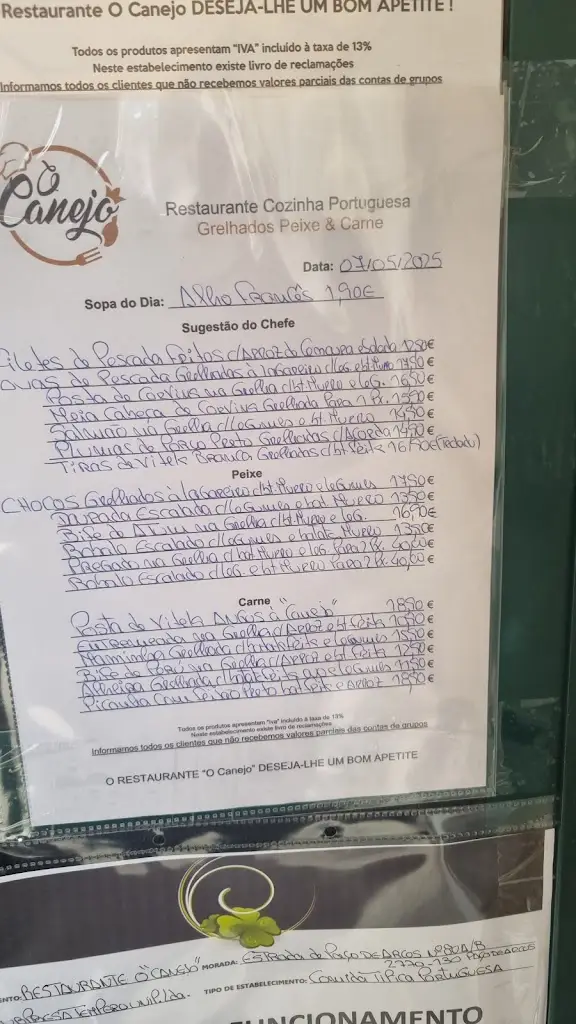 Restaurante O Canejo DESEJA-LHE UM BOM APETITE !
Todos os produtos apresentam "IVA" incluído à taxa de 13%
Neste estabelecimento existe livro de reclamações
Informamos todos os clientes que não recebemos valores parciais das contas de grupos
O Canejo
Restaurante Cozinha Portuguesa
Grelhados Peixe & Carne
Data: 07/05/2025
Sopa do Dia: Alho Francês 1,90€
Sugestão do Chefe
Filetes de Pescada Fritos c/Arroz de Camarão e Salada 12,50€
Ovas de Pescada Grelhadas à lagareiro c/leg. e bt. Murro 17,50€
Posta de Corvina na Grelha c/bt Murro e leg. 16,50€
Meia Cabeça de Corvina Grelhada Para 1 Px. 15,00€
Salmão na Grelha c/legumes e bt. Murro 14,50€
Plumas de Porco Preto Grelhadas c/Açorda 14,50€
Tiras de Vitela Branca Grelhadas c/bt frita 16,50€
Peixe
CHOCOS Grelhados à lagareiro c/bt Murro e legumes 17,50€
Dourada Escalada c/legumes e bat Murro 13,50€
Bife de Atum na Grelha c/bt Murro e leg. 16,90€
Robalo Escalado c/legumes e batata Murro 13,50€
Pregado na Grelha c/bt Murro e leg. Para 2 Px. 40,00€
Robalo Escalado c/leg. e bt Murro Para 2 Px. 40,00€
Carne
Posta de Vitela Angus à "Canejo" 18,50€
Entremeada na Grelha c/Arroz e bt frita 10,50€
Maminha Grelhada c/batata frita e legumes 15,50€
Bife de Perú na Grelha c/Arroz e bt frita 12,50€
Alheira Grelhada c/batata frita ovo e legumes 11,50€
Picanha com feijão Preto bat frita e arroz 18,50€
Todos os produtos apresentam "Iva" incluído à taxa de 13%
Neste estabelecimento existe livro de reclamações
Informamos todos os clientes que não recebemos valores parciais das contas de grupos
O RESTAURANTE "O Canejo" DESEJA-LHE UM BOM APETITE
RESTAURANTE O "CANEJO" MORADA: ESTRADA de PAÇO DE ARCOS Nº 80 A/B
2770-130 PAÇO DE ARCOS
TIPO DE ESTABELECIMENTO: COMIDA TIPICA PORTUGUESA
UNCIONAMENTO